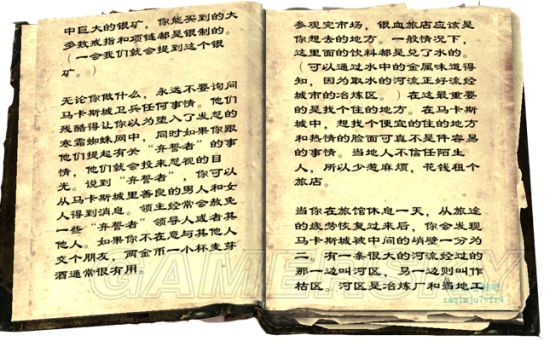 中巨大的银矿，你能买到的大
多数戒指和项链都是银制的。
（一会我们就会提到这个银
矿。）
无论你做什么，永远不要询问
马卡斯城卫兵任何事情。他们
残酷得让你以为堕入了发怒的
寒霜蜘蛛网中，同时如果你跟
他们提起有关“弃誓者”的事
情，他们就会投来忽视的目
光。说到“弃誓者”，你可以
从马卡斯城里善良的男人和女
人得到消息。领主经常会赦免
一些“弃誓者”领导人或者其
他人。如果你不在意与其他人
交个朋友，两金币一小杯麦芽
酒通常很有用。
参观完市场，银血旅店应该是
你想去的地方。一般情况下，
这里面的饮料都是兑了水的。
（可以通过水中的金属味道得
知，因为取水的河流正好流经
城市的冶炼区。）在这最重要
的是找个住的地方。在马卡斯
城中，想找个便宜的住的地方
和热情的脸面可真不是件容易
的事情。当地人不信任陌生
人，所以少惹麻烦，花钱租个
旅店。
当你在旅馆休息一天，从旅途
的疲劳恢复过来后，你会发现
马卡斯城被中间的峭壁一分为
二。有一条很大的河流经过的
那一边叫河区，另一边则叫作
枯区。河区是冶炼厂和当地工
GAMERSKY
zaq1mju7vfr4